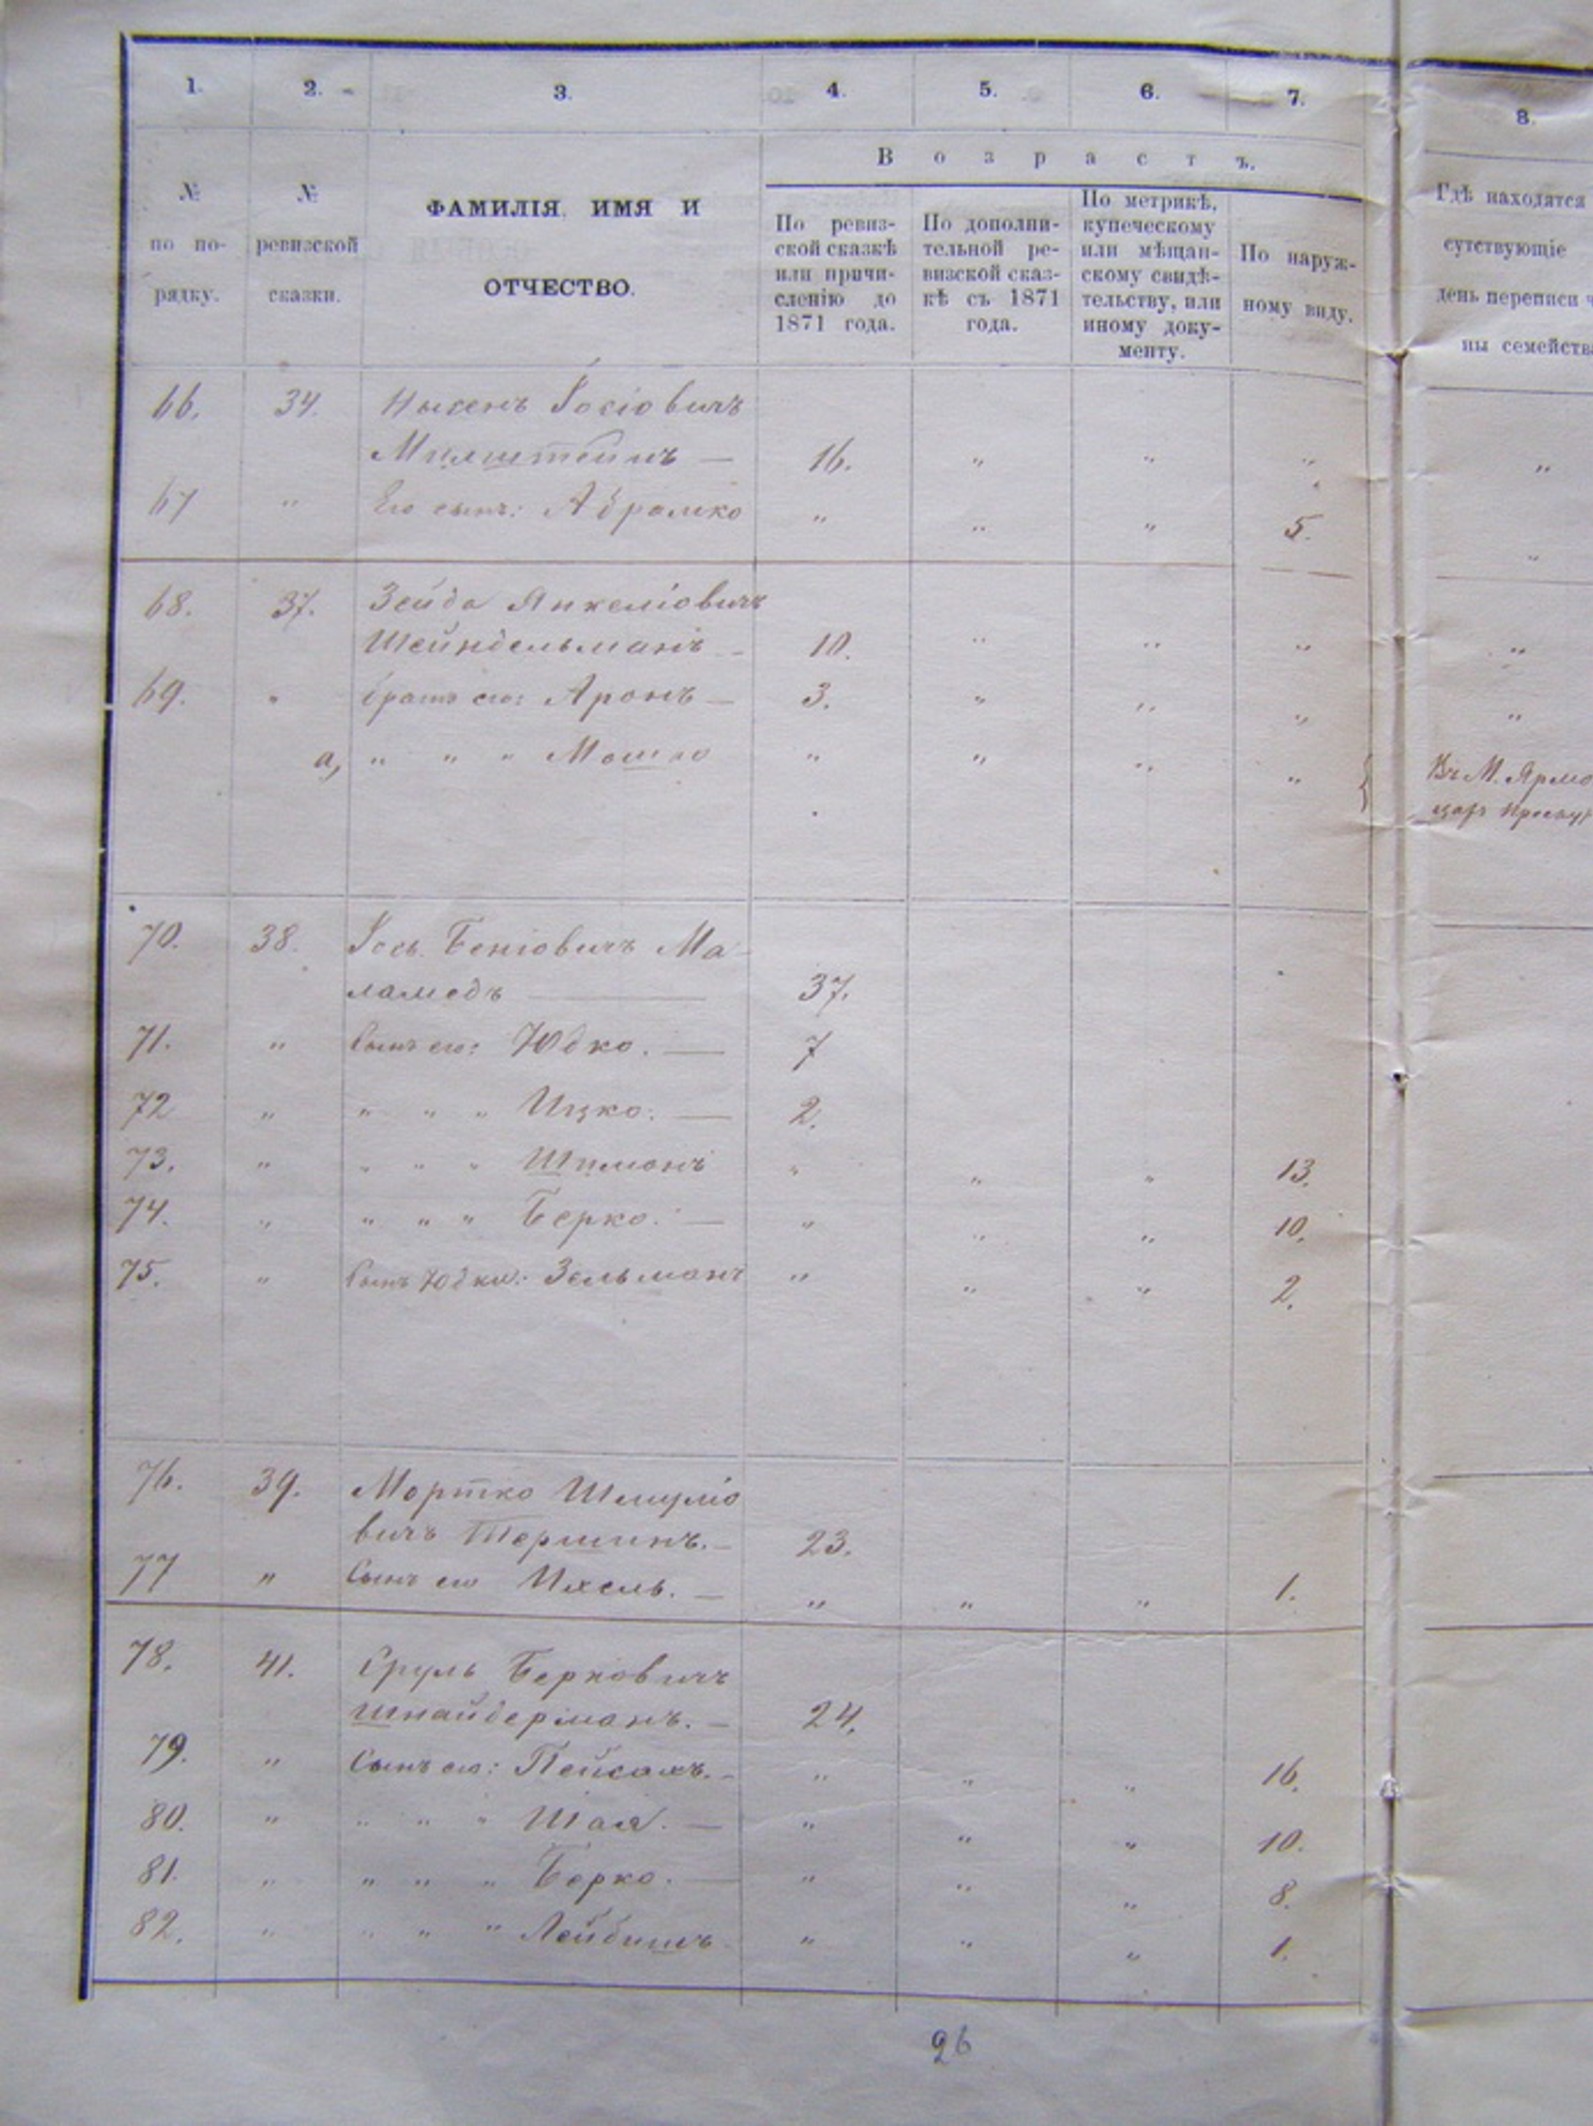 1. 2. 3. 4. 5. 6. 7. 8.
В о з р а с т ъ.
№
по по-
рядку.
№
ревизской
сказки.
ФАМИЛІЯ ИМЯ И
ОТЧЕСТВО.
По ревиз-
ской сказкѣ
или причи-
сленію до
1871 года.
По дополни-
тельной ре-
визской сказ-
кѣ съ 1871
года.
По метрикѣ,
купеческому
или мѣщан-
скому свидѣ-
тельству, или
иному доку-
менту.
По наруж-
ному виду.
Гдѣ находятся
сутствующіе
день переписи ч
ны семейства
66. 34. Іосіовичъ
Милштейнъ — 16. " " " "
67 " Его сынъ: Абрамко " " " 5. "
68. 37. Зейда Янкеліовичъ
Шейндельманъ - 10. " " " "
69. " братъ его: Аронъ — 3. " " " "
а, " " " Мошко " " " " Въ М. Ярмо
70. 38. Іось Беніовичъ Ма-
ламедъ — 37.
71. " Сынъ его: Юдко. — 7
72 " " " " Ицко. — 2.
73. " " " " Шимонъ " " " 13.
74. " " " " Берко. — " " " 10.
75. " Сынъ Юдки: Зельманъ " " " 2.
76. 39. Мортко Шмуліо
вичъ Тершинъ. - 23.
77 " Сынъ его Ихель. — " " " 1.
78. 41. Сруль Берковичъ
Шнайдерманъ. — 24.
79. " Сынъ его: Пейсахъ. - " " " 16.
80. " " " " Шая. — " " " 10.
81. " " " " Берко. — " " " 8.
82. " " " " Лейбишъ " " " 1.
26